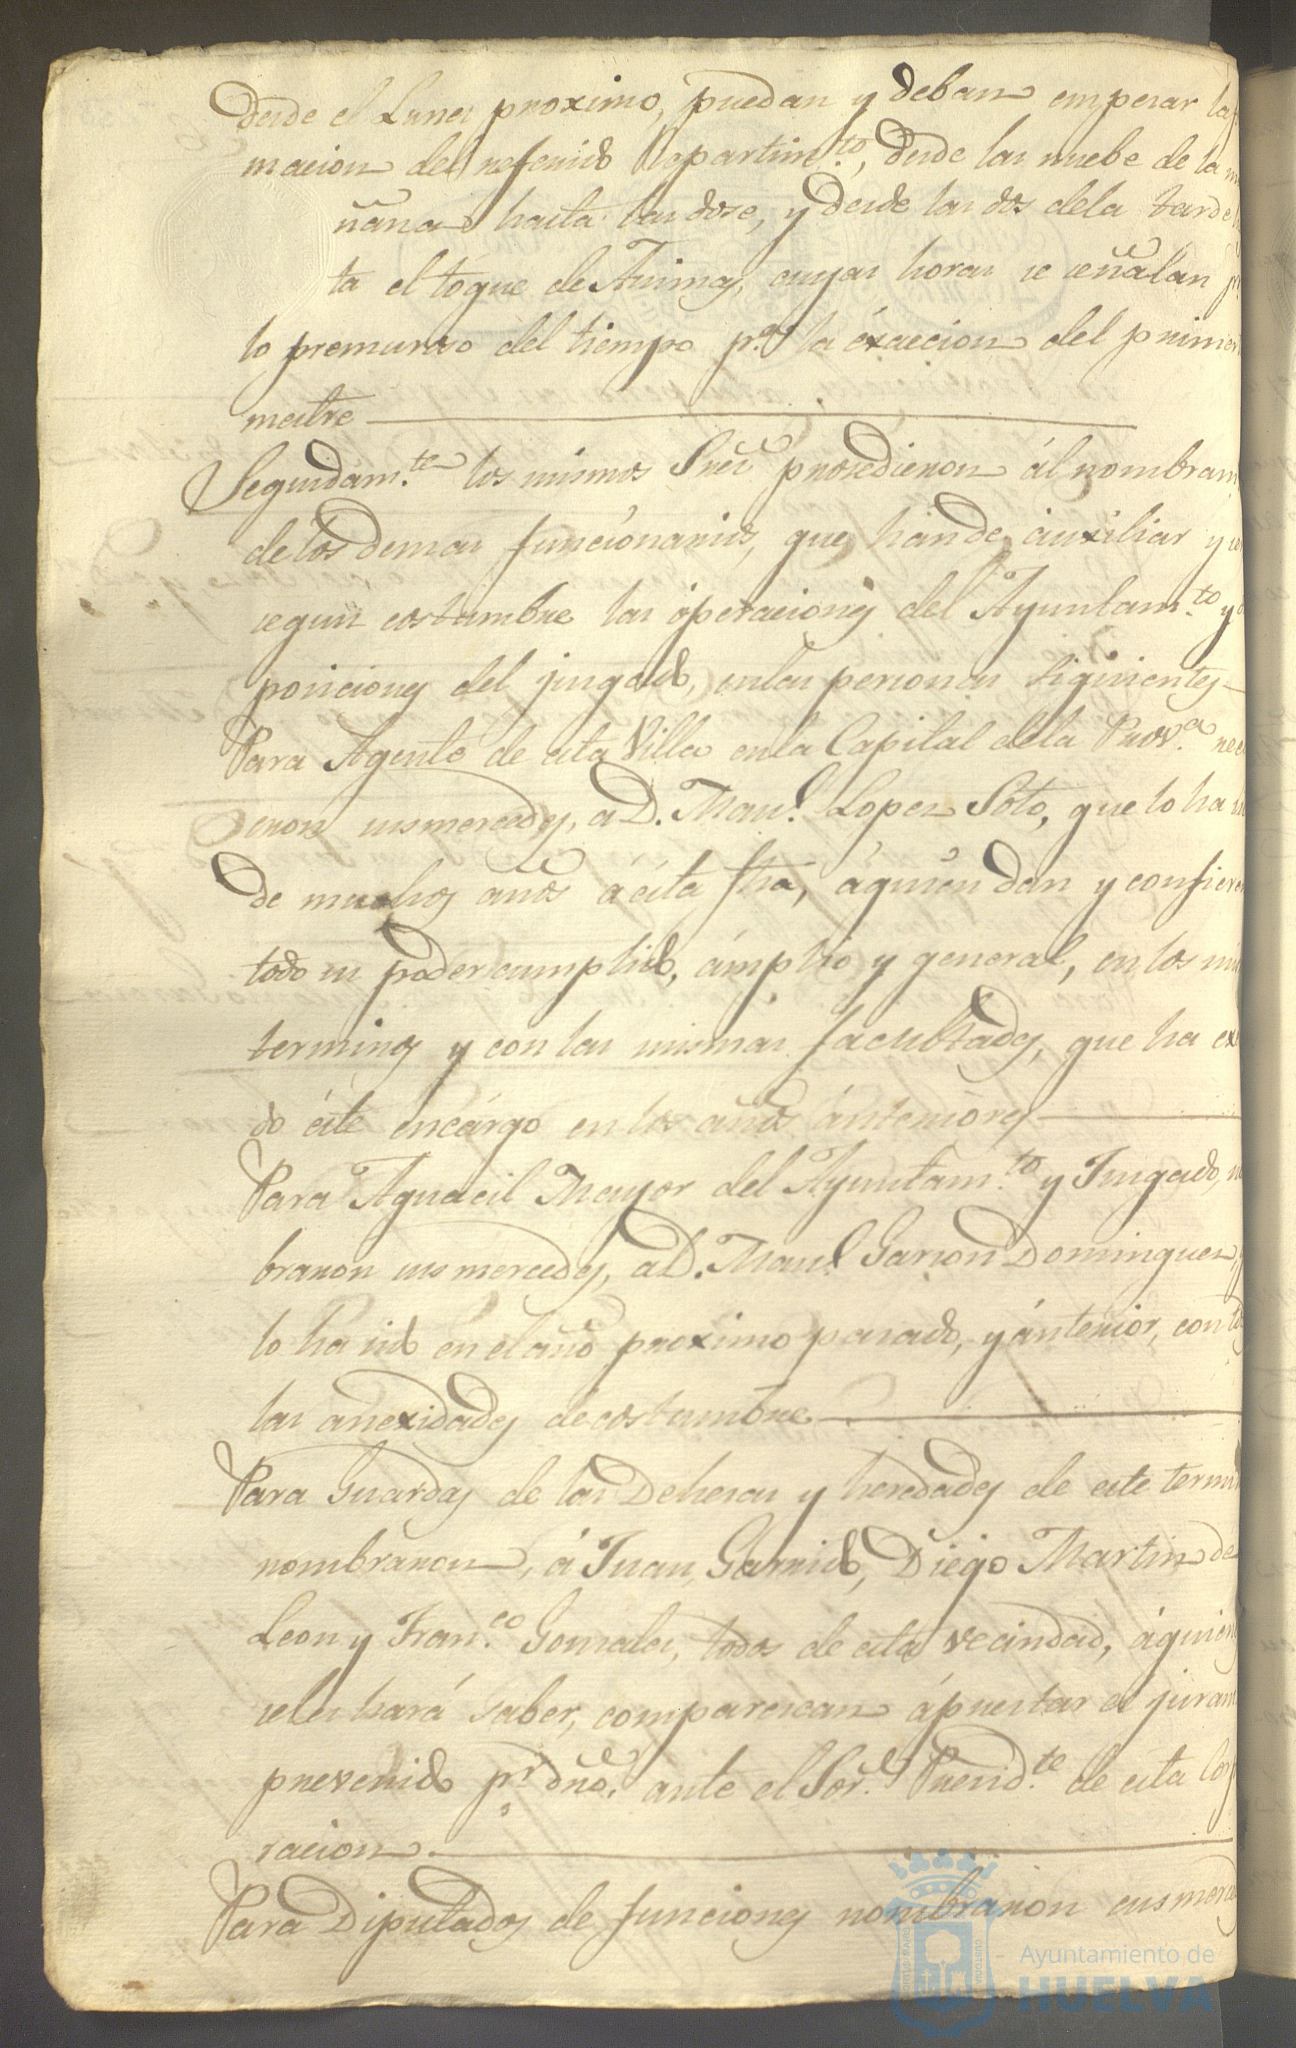 desde el Lunes proximo, puedan y deban empesar la
macion del referido Repartim.to, desde las nuebe de la
ñana hasta las dose, y desde las dos dela tarde
ta el toque de Animas, cuyas horas se señalan
lo premuroso del tiempo p.a la éxaccion del primer
mestre
Seguidam.te los mismos Sres prosedieron ál nombram
delos demas funcionarios, que hande áuxiliar y
segun costumbre las óperaciones del Ayuntam.to y
posiciones del jusgado, enlas personas siguientes
Para Agente de esta Villa en la Capital dela Prov.a
eron susmercedes, a D. Man.l Lopez Soto, que lo ha
de muchos años a ésta fha, áquien dan y confieren
todo su poder cumplido, ámplio y general, en los
terminos y con las mismas facultades, que ha
do éste encárgo en los años ánteriores
Para Aguacil Mayor del Ayuntam.to y Jusgado,
braron susmercedes, a D. Man.l Garson Dominguez,
lo ha sido en el año proximo pasado, y ánterior, con
las anexidades de costumbre
Para Guardas de las Dehesas y heredades de este termino
nombraron, á Juan Garrido, Diego Martin de
Leon y Fran.co Gonzales, todos de esta vecindad, áquienes
seles hará saber, comparescan áprestar el juram
prevenido p.r dro. ante el Sor. Presid.te de esta Corpo
racion.
Para Diputados de funciones nombraron susmercedes
Ayuntamiento de
HUELVA